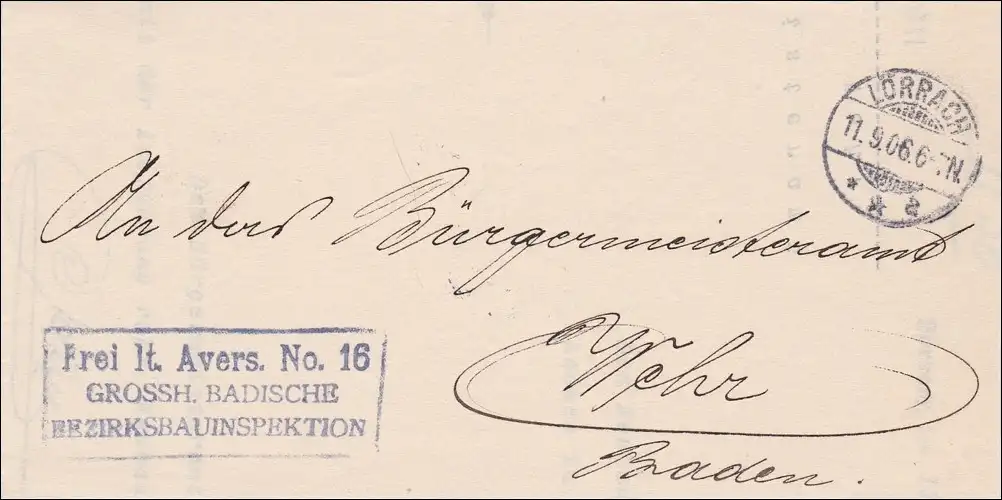 LÖRRACH
11.9.06.6-7N.
* * a
An das Bürgermeisteramt
Frei lt. Avers. No. 16
GROSSH. BADISCHE
BEZIRKSBAUINSPEKTION
Wehr
Baden.